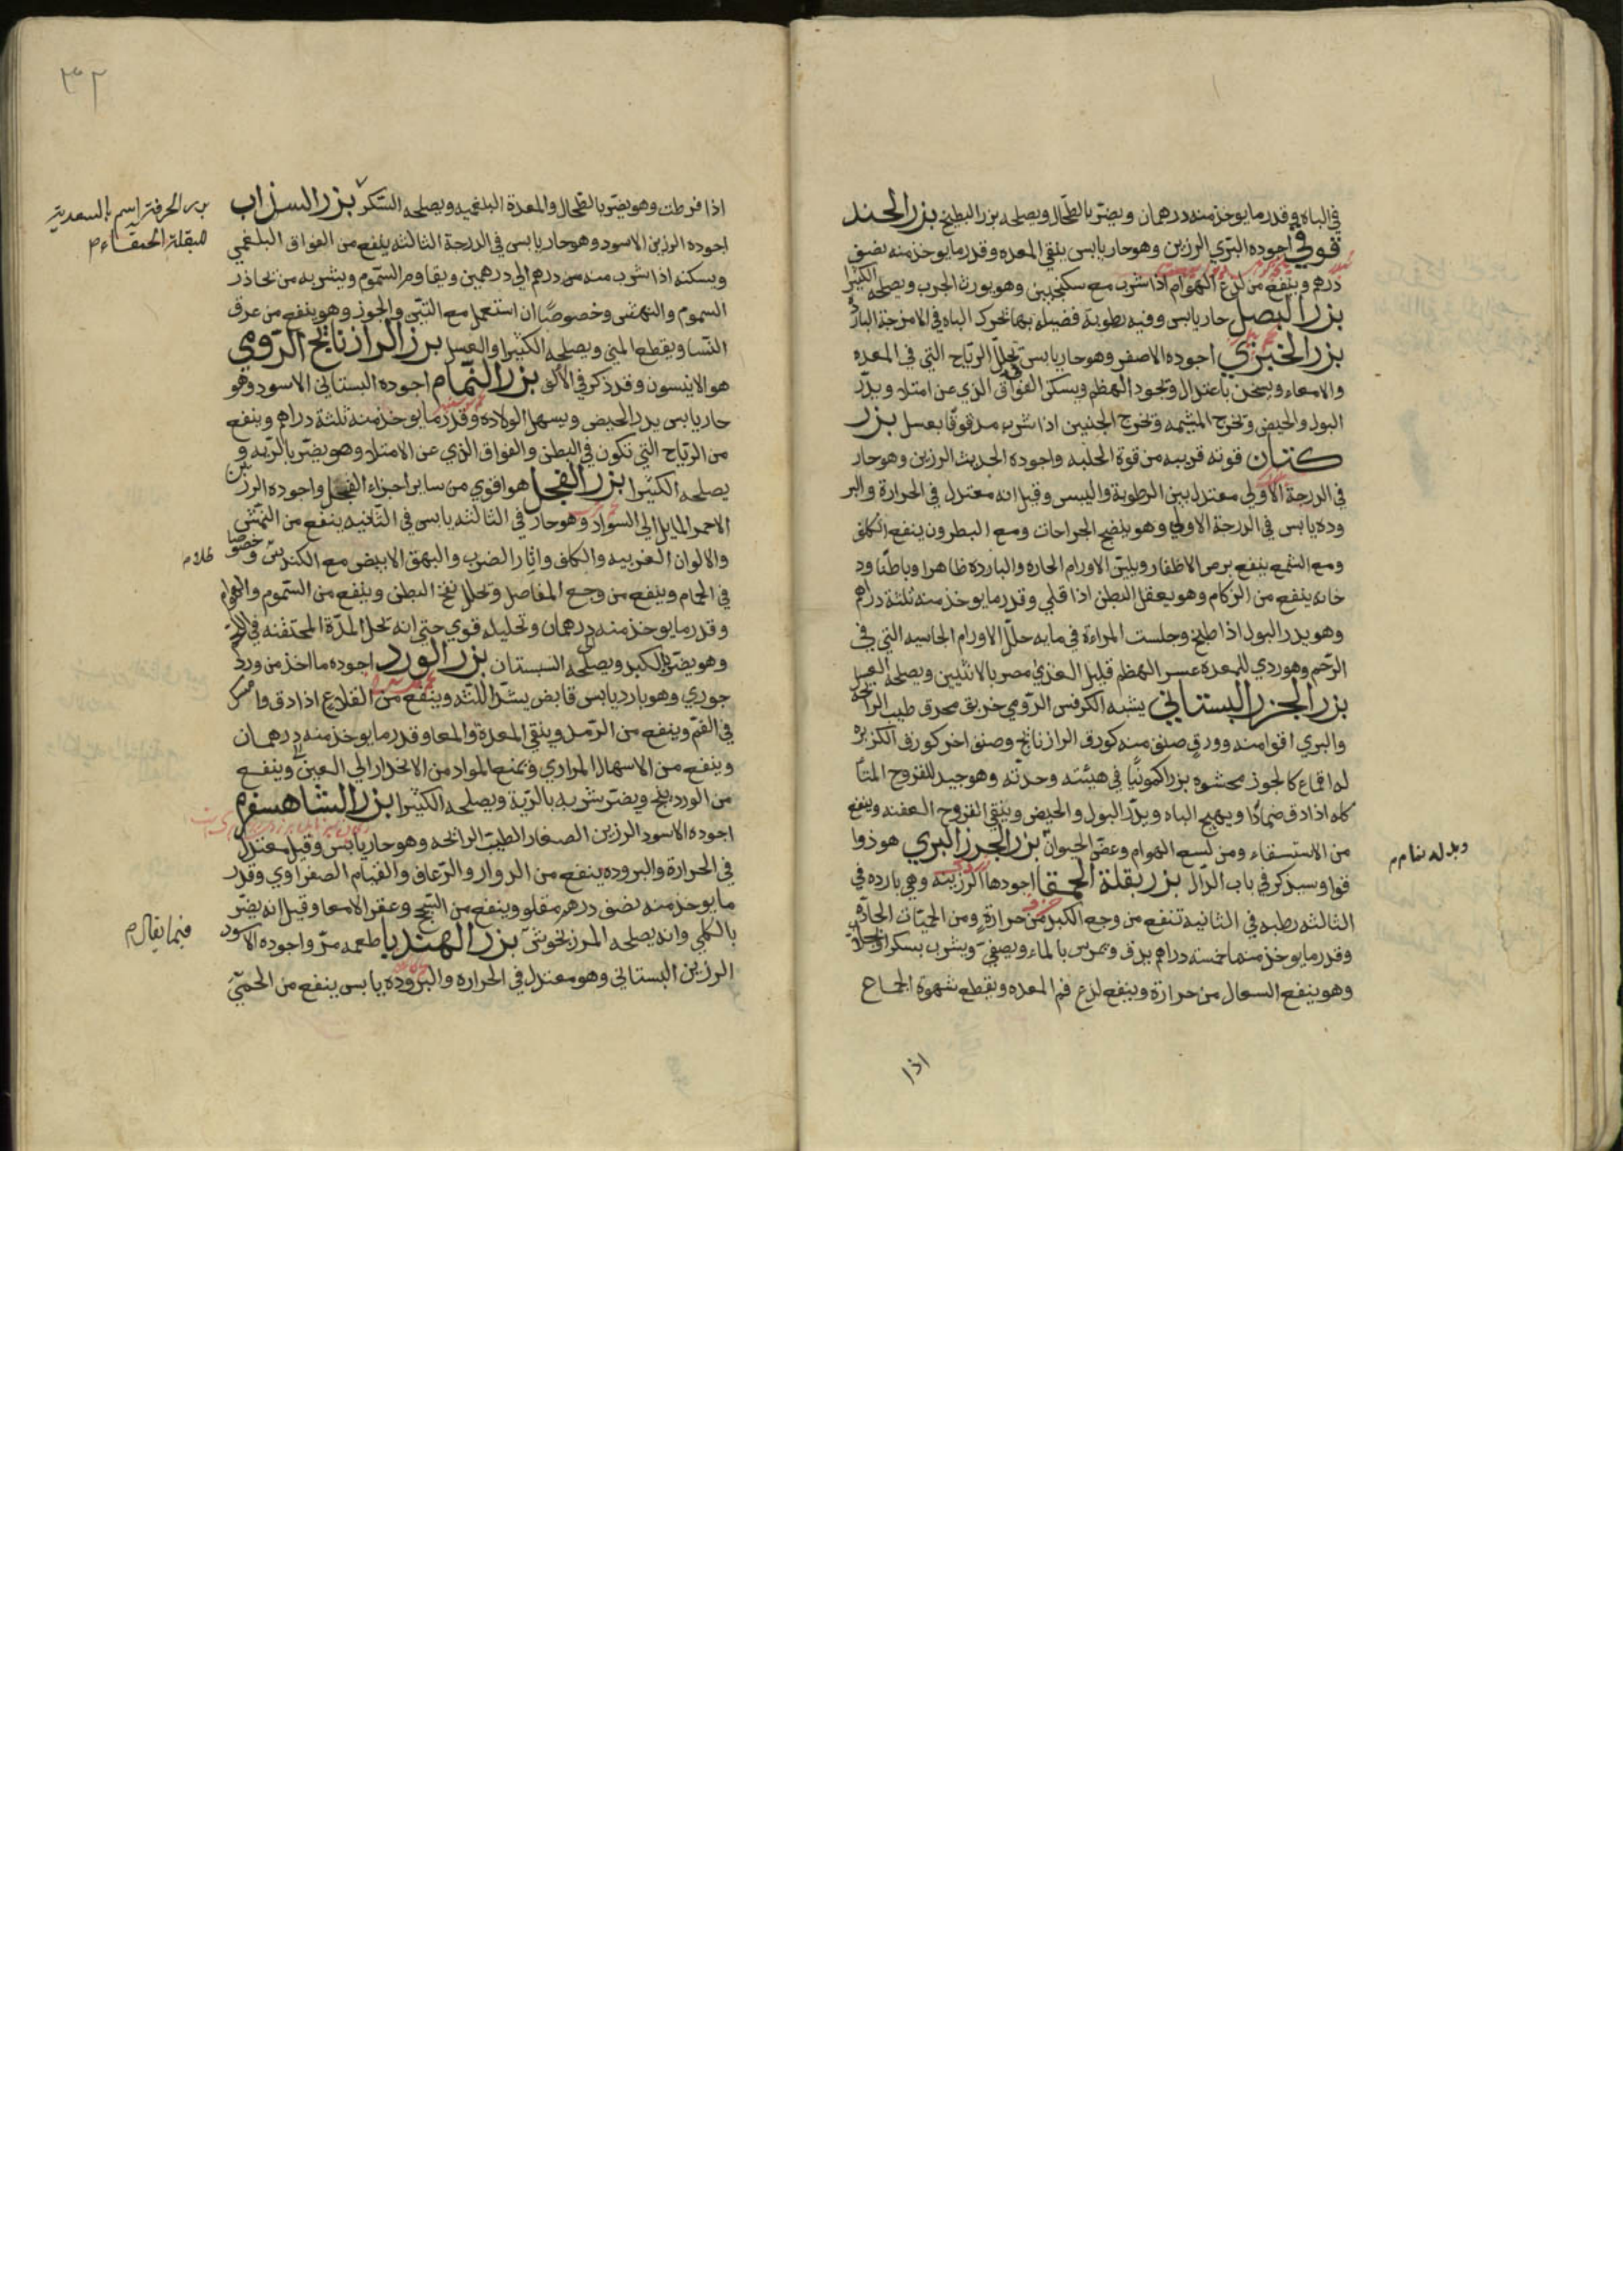 في الباه وقدر مايوخذ منه درهمان ويضرّ بالطحال ويصلحه بزر البطيخ بزر الحند
قوقي اجوده البرّي الرزين وهو حار يابس ينقي المعده وقدر مايوخذ منه نصف
درهم وينفع من لدغ الهوام اذا شرب مع سكنجبين وهو يورث الجرب ويصلحه الكثيرا
بزر البصل حار يابس وفيه رطوبة فضيله بها تحرك الباه في الامزجة البارد
بزر الخيري اجوده الاصفر وهو حار يابس تحلل الرّياح التي في المعده
والامعاء ويسخن باعتدال وتجود الهظم ويسكن الفواق الذي عن امتلا ويدرّ
البول والحيض وتخرج المشيمه وتخرج الجنين اذا شرب مدقوقا بعسل بزر
كتان قوته قريبه من قوة الحلبه واجوده الحديث الرزين وهو حار
في الدرجة الاولي معتدل بين الرطوبة واليبس وقيل انه معتدل في الحرارة والبر
وده يابس في الدرجة الاولي وهو ينضج الجراحات ومع البطرون ينفع الكلف
ومع الشمع ينفع برص الاظفار ويليّن الاورام الحاره والبارده ظاهرا وباطنا ود
خانه ينفع من الزكام وهو يعقل البطن اذا قلي وقدر مايوخذ منه ثلثة دراهم
وهو يدر البول اذا طبخ وجلست المراءة في مايه حلل الاورام الجاسيه التي في
الرّحم وهو ردي للمعده عسر الهظم قليل الغذي مصر بالانثيين ويصلحه العسل
بزر الجزر البستاني يشبه الكرفس الرّومي خريق محرق طيب الرائحه
والبري اقوا منه وورق صنف منه كورق الرازنانج وصنف اخر كورق الكزبره
له اقماع كالجوز محشوه بزرا كمونيّا في هيئته وحدّته وهو جيد للقروح المتا
كله اذا دق ضمادا ويهيج الباه ويدرّ البول والحيض وينقي القروح العفنه وينفع
من الاستسقاء ومن لسع الهوام وعضّ الحيوان بزر الجزر البري هو ذوا
قوا وسيذكر في باب الدّال بزر بقلة الحمقا اجودها الرزينه وهي بارده في
الثالثه رطبه في الثانيه تنفع من وجع الكبد من حرارة ومن الحميّات الحادّه
وقدر مايوخذ منها خمسة دراهم يدق ويمرس بالماء ويصفي ويشرب بسكر
وهو ينفع السعال من حرارة وينفع لدع فم المعده ويقطع شهوة الجماع
اذا
وبدله نمام
٣٢
اذا فرطت وهو يضرّ بالطحال والمعدة البلغميه ويصلحه السّكر بزر السذاب
اجوده الرزين الاسود وهو حار يابس في الدرجة الثالثه ينفع من الفواق البلغمي
ويسكنه اذا شرب منه من درهم الي درهمين ويقاوم السّموم ويشربه من تحاذر
السموم والنهش وخصوصا ان استعمل مع التين والجوز وهو ينفع من عرق
النّسا ويقطع المني ويصلحه الكثيرا والعسل برز الرازنانج الرّومي
هو الانيسون وقد ذكر في الألف بزر النّمام اجوده البستاني الاسود وهو
حار يابس يدر الحيض ويسهل الولاده وقدر مايوخذ منه ثلثة دراهم وينفع
من الرّياح التي تكون في البطن والفواق الذي عن الامتلا وهو يضرّ بالرّيه و
يصلحه الكثيرا بزر الفجل هو اقوي من ساير اجزاء الفجل واجوده الرزين
الاحمر المايل الي السواد وهو حار في الثالثه يابس في الثّانيه ينفع من النمش
والالوان الغريبه والكلف واثار الضرب والبهق الابيض مع الكندس وخصوصا
في الحمام وينفع من وجع المفاصل وتحلل نفخ البطن وينفع من السّموم والهوام
وقدر مايوخذ منه درهمان وتحليله قوي حتي انه تحل المدّة المحتقنه في
وهو يضرّ بالكبد ويصلحه السبستان بزر الورد اجوده ما اخذ من ورد
جوري وهو بارد يابس قابض يشدّ اللثه وينفع من القلاع اذا دق وامسك
في الفم وينفع من الرّمد وينقي المعدة والمعا وقدر مايوخذ منه درهمان
وينفع من الاسهال المراري ويمنع المواد من الانحدار الي العين وينفع
من الوردينج ويضرّ شربه بالرّية ويصلحه الكثيرا بزر الشاهسفرم
اجوده الاسود الرزين الصغار الطيب الرائحه وهو حار يابس وقيل معتدل
في الحرارة والبروده ينفع من الدوار والرّعاف والقيام الصفراوي وقدر
مايوخذ منه نصف درهم مقلو وينفع من السّحج وعقر الامعا وقيل انه يضرّ
بالكلي وانه يصلحه المرزنجوش بزر الهندبا طعمه مرّ واجوده الاسود
الرزين البستاني وهو معتدل في الحراره والبروده يابس ينفع من الحمّي
بزر الحرفة اسم بالسعدية
للبقلة الحمقاء م
ظلام
فيما يقال م